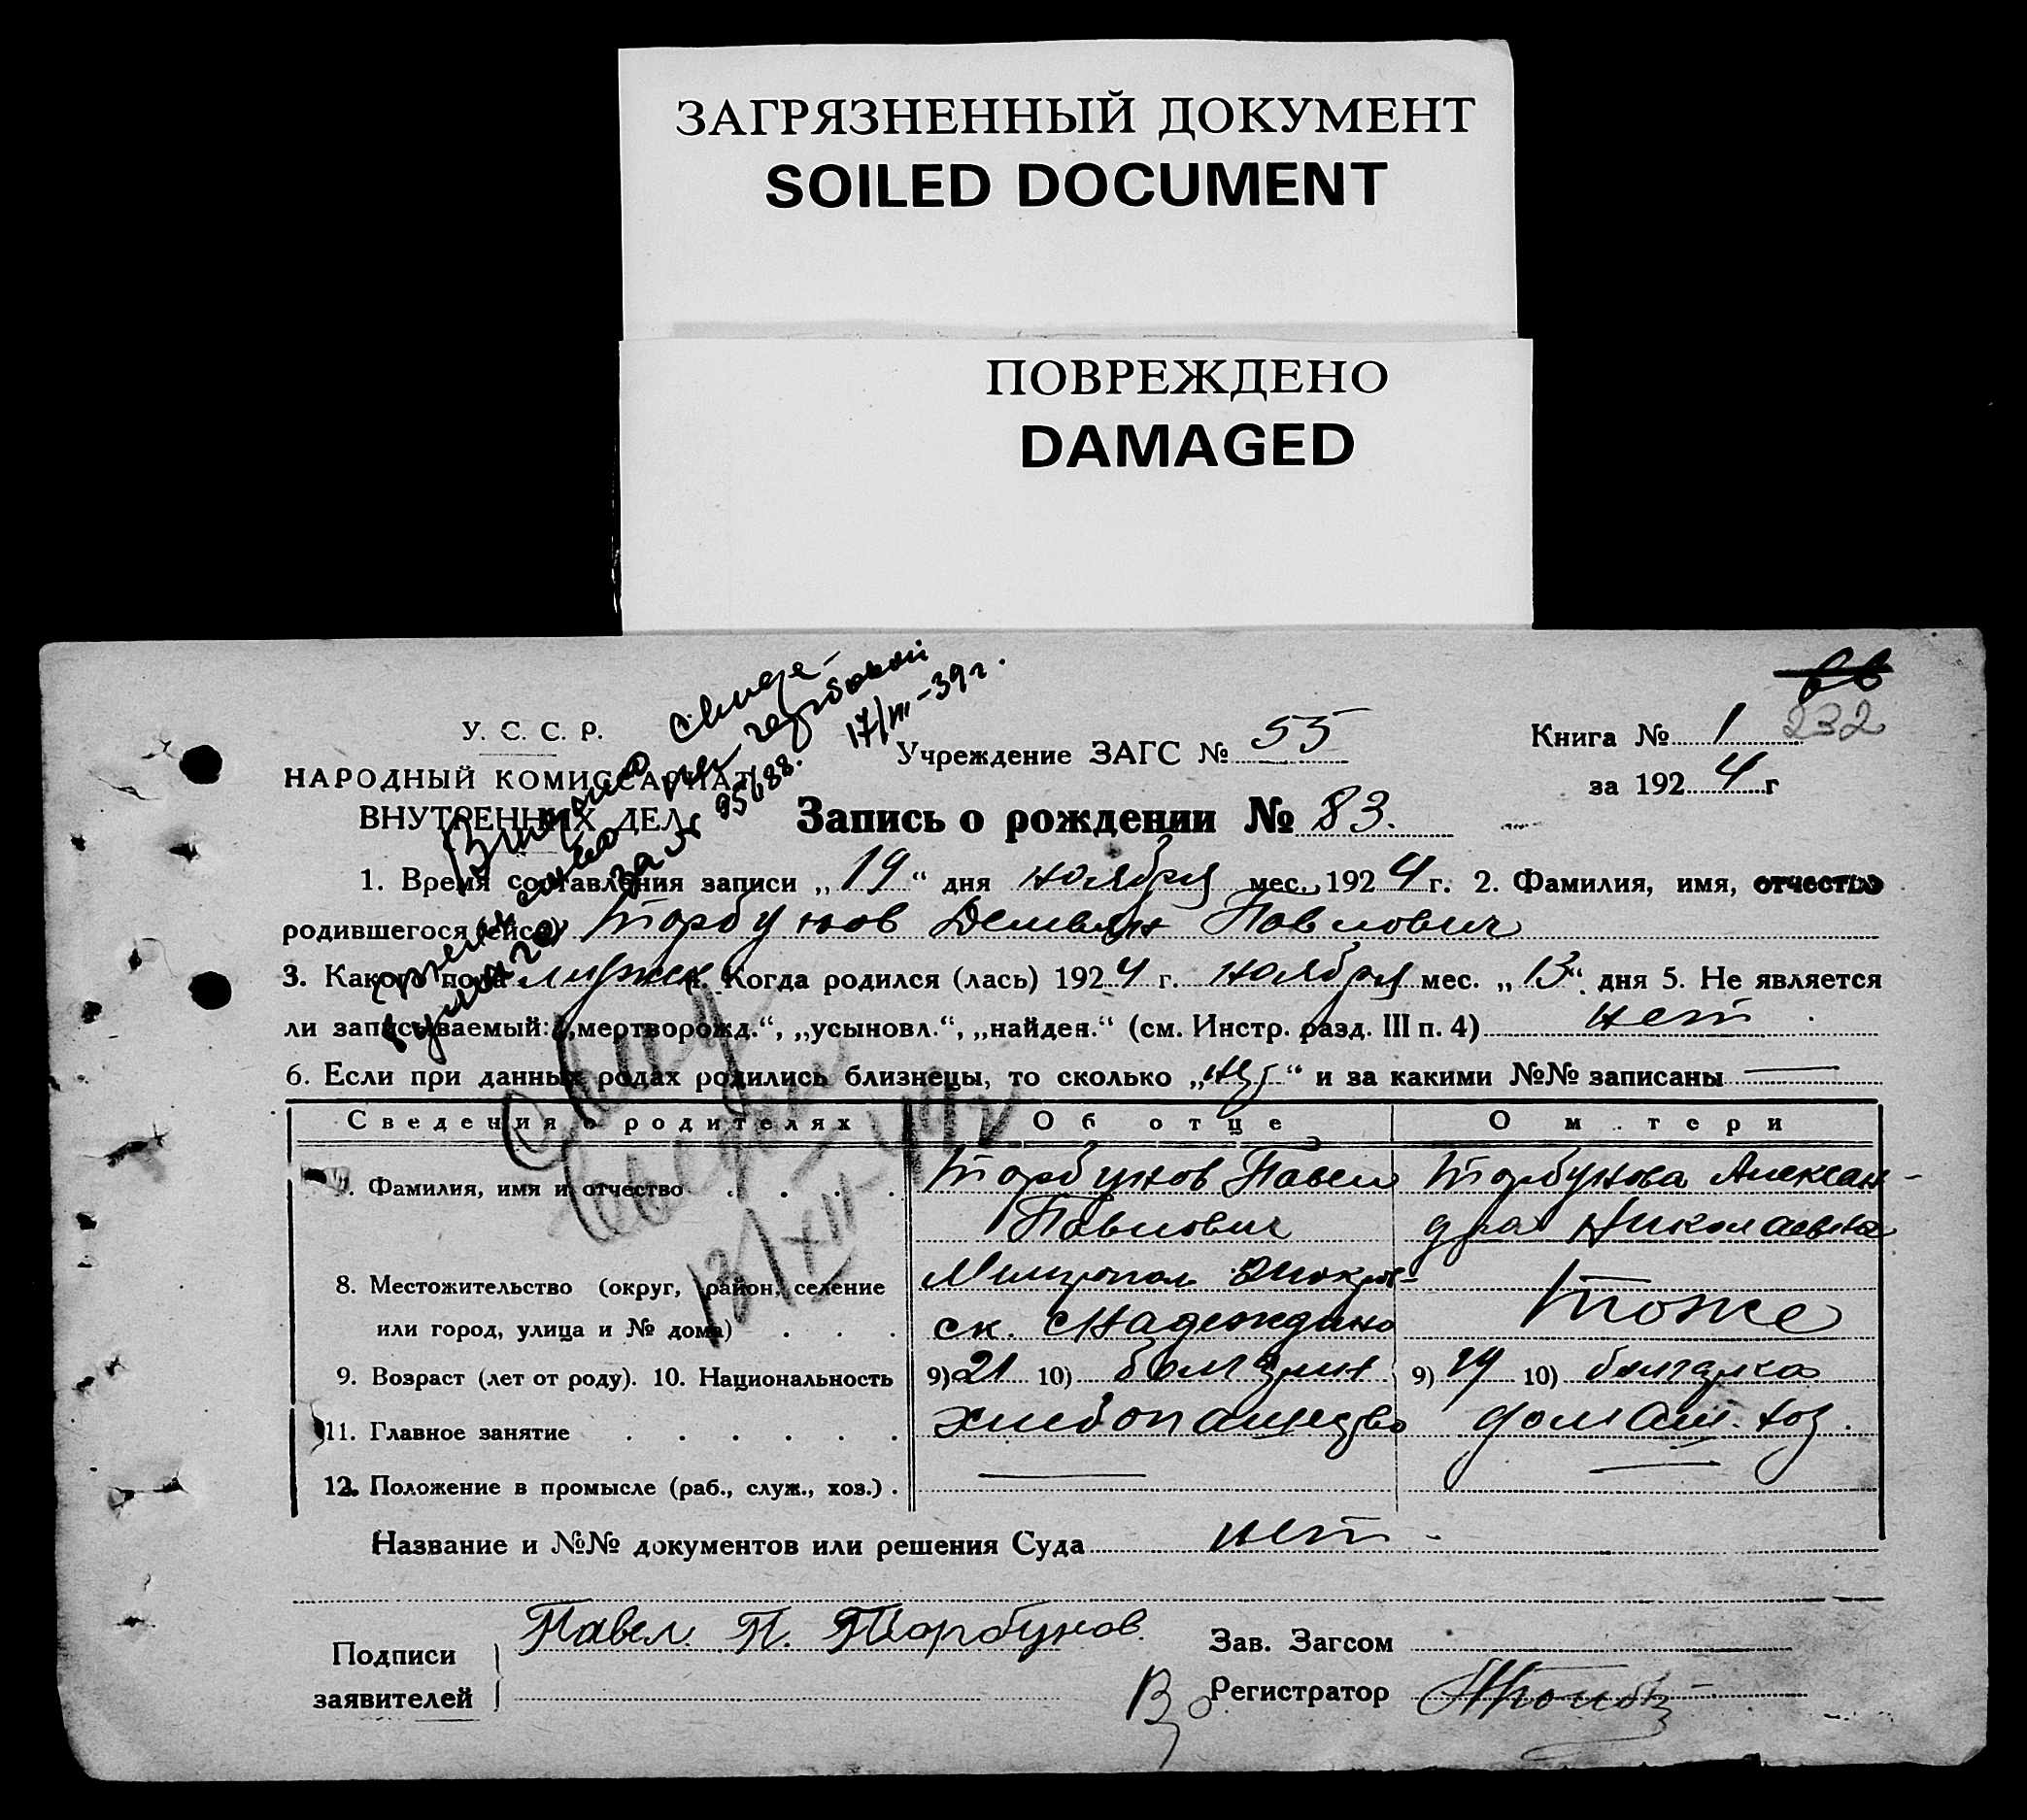 ЗАГРЯЗНЕННЫЙ ДОКУМЕНТ
SOILED DOCUMENT
ПОВРЕЖДЕНО
DAMAGED
232
У. С. С. Р.
НАРОДНЫЙ КОМИССАРИАТ
ВНУТРЕННИХ ДЕЛ
Выдано свиде-
за № 95188. 17/III-39г.
Учреждение ЗАГС № 55
Книга № 1
за 1924 г
Запись о рождении № 83.
1. Время составления записи „19“ дня ноября мес. 1924 г. 2. Фамилия, имя, отчество
родившегося (ейся) Торбунов Демьян Павлович
3. Какого пола мужск. Когда родился (лась) 1924 г. ноября мес. „13“ дня 5. Не является
ли записываемый: „мертворожд.“, „усыновл.“, „найден.“ (см. Инстр. разд. III п. 4) нет
6. Если при данных родах родились близнецы, то сколько „нет“ и за какими №№ записаны —
Сведения о родителях Об отце О матери
7. Фамилия, имя и отчество . . . . Торбунов Павел Торбунова Алексан-
Павлович дра Николаевна
8. Местожительство (округ, район, селение Мелитопол
или город, улица и № дома) . . . ск. с Надеждино Тоже
9. Возраст (лет от роду). 10. Национальность 9) 21 10) болгарин 9) 19 10) болгарка
11. Главное занятие . . . . . . хлебопашество домаш. хоз.
12. Положение в промысле (раб., служ., хоз.) . — —
Название и №№ документов или решения Суда нет
Подписи заявителей Павел П. Торбунов.
Зав. Загсом
Регистратор